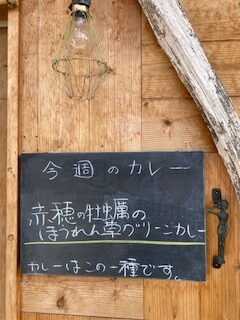 今週のカレー
赤穂の牡蠣の
ほうれん草グリーンカレー
カレーはこの一種です。